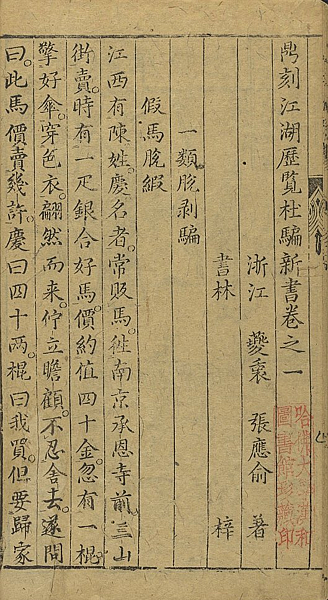 鼎刻江湖歷覽杜騙新書卷之一
浙江 夔衷 張應俞 著
書林 梓
一類脫剥騙
假馬脫緞
江西有陳姓。慶名者。常販馬。往南京承恩寺前三山
街賣。時有一疋銀合好馬。價約值四十金。忽有一棍。
擎好傘。穿色衣。翩然而来。佇立瞻顧。不忍舍去。遂問
曰。此馬價賣幾許。慶曰四十两。棍曰我買。但要歸家
哈佛大學漢和
圖書館珍藏印